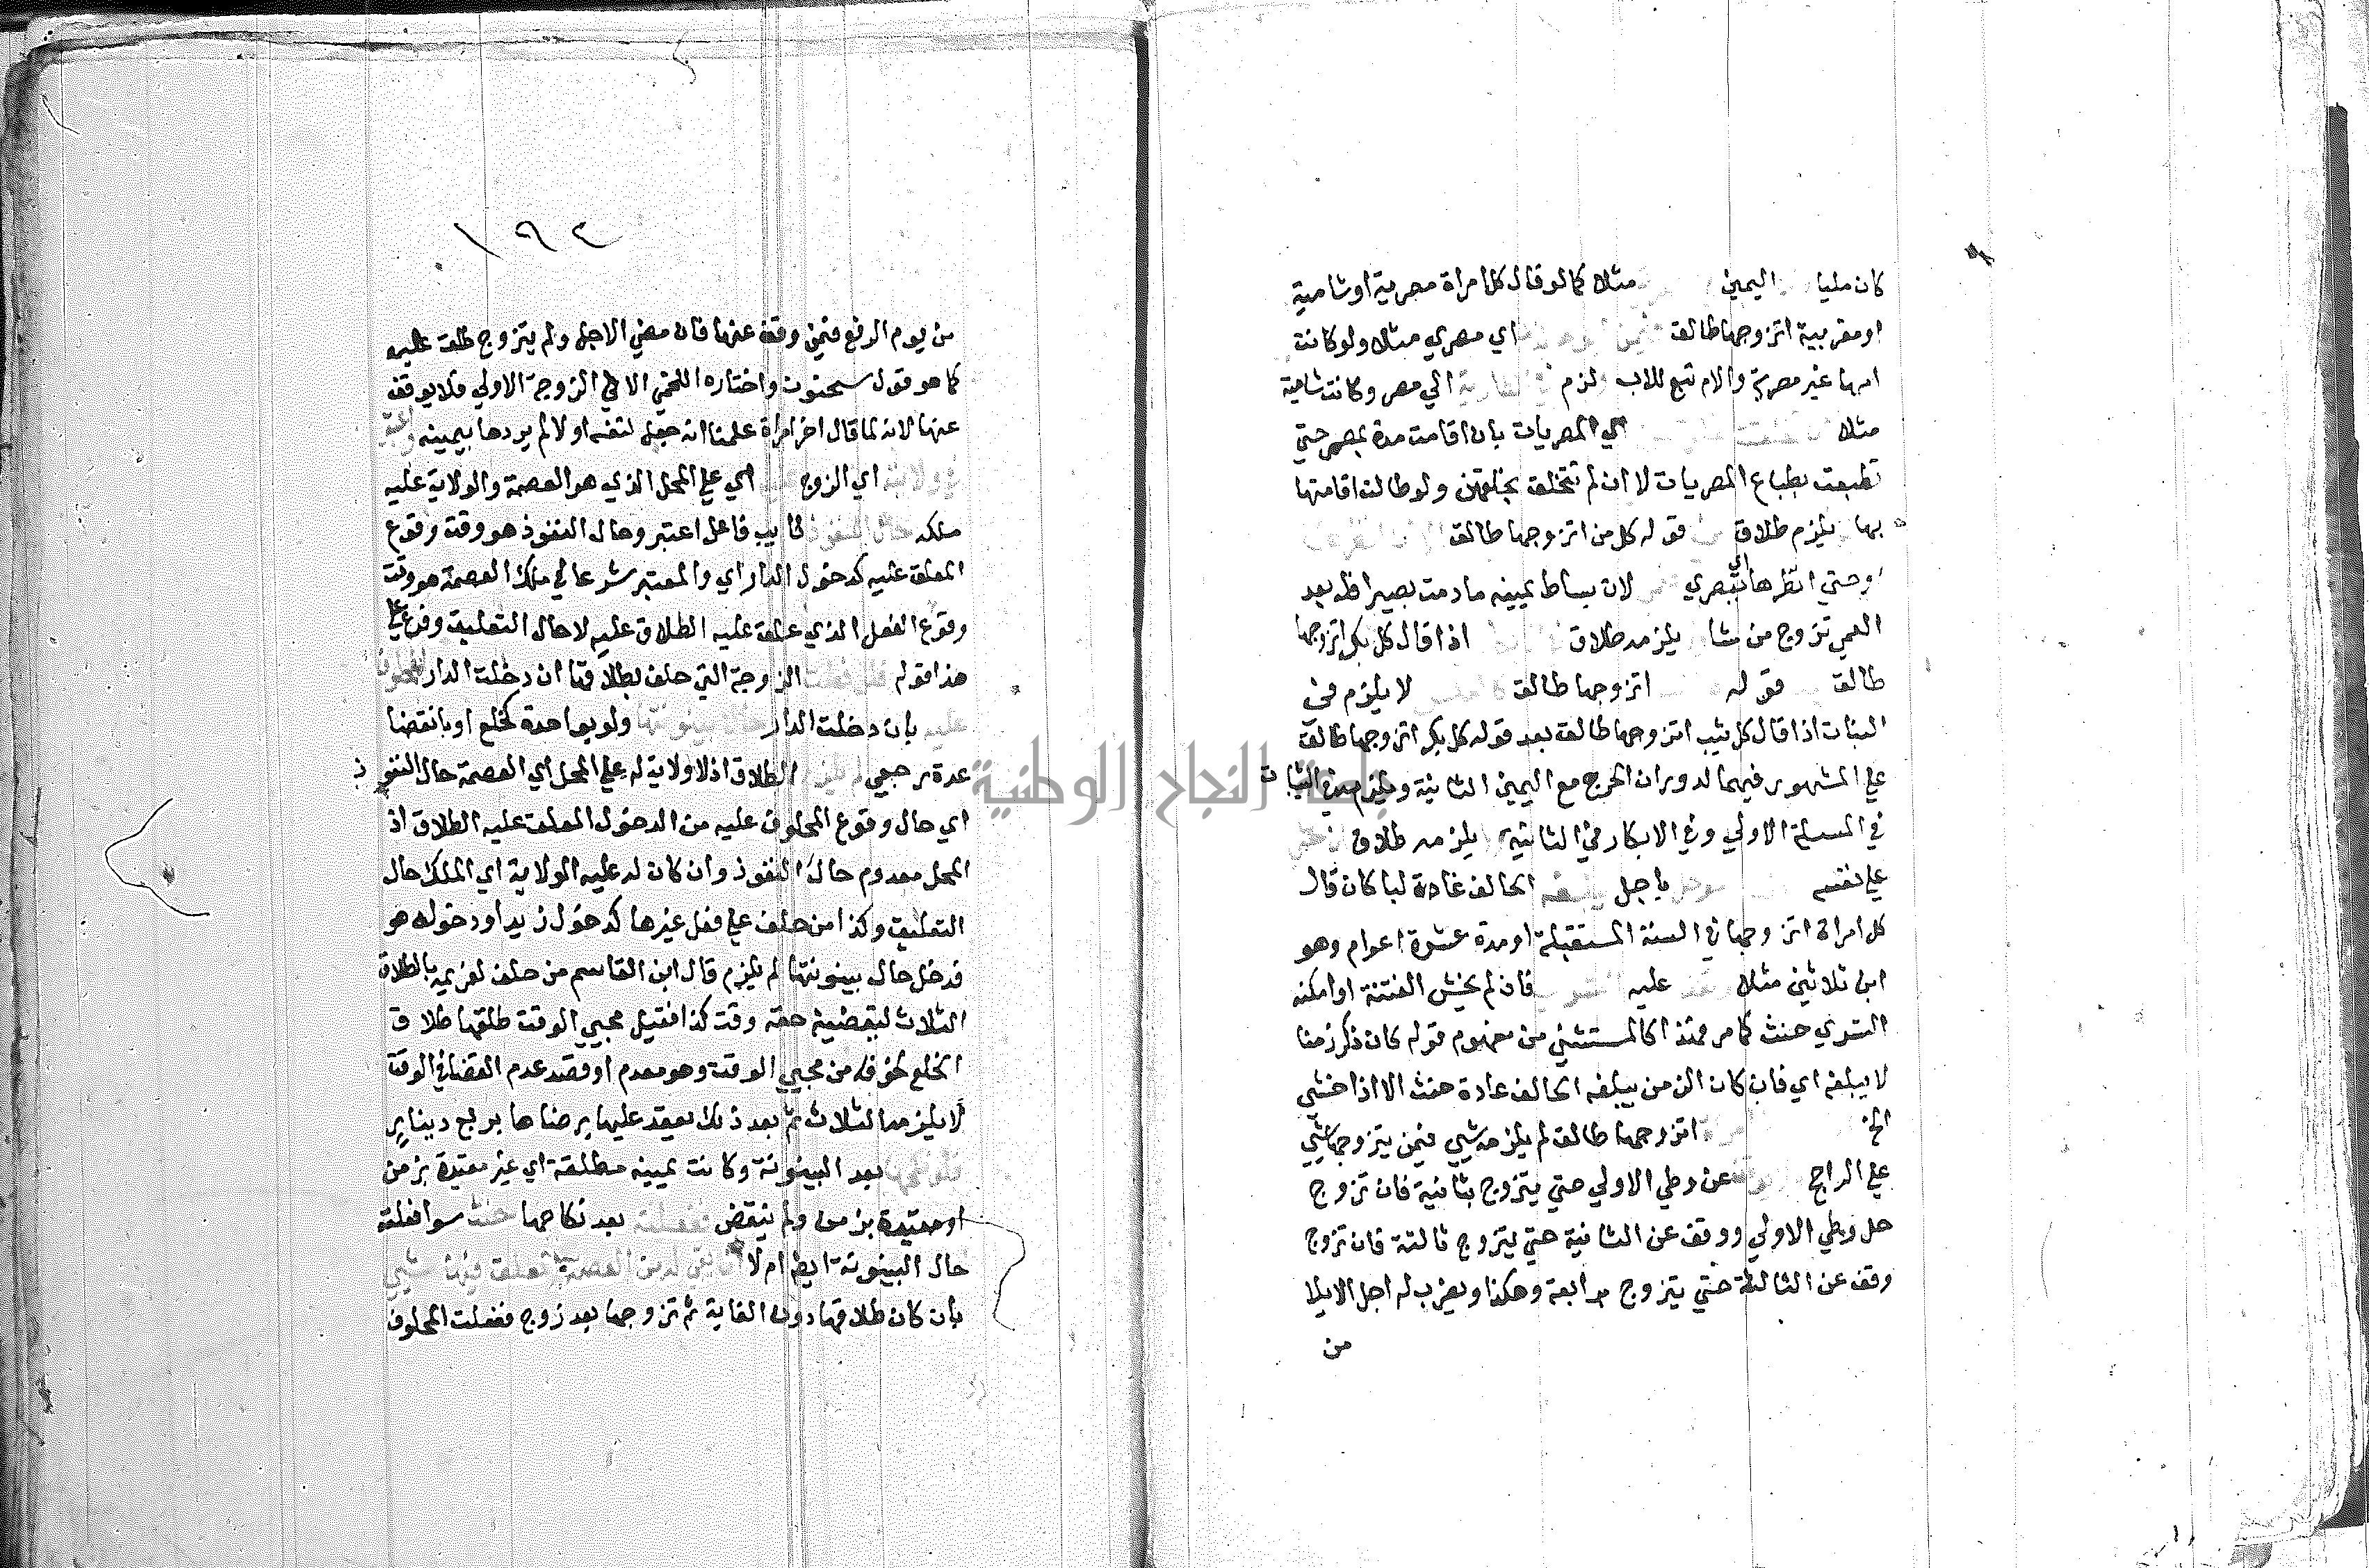 كان مليا اليمين مثلا كما لو قال كل امراة مصرية او شامية
او مغربية اتزوجها طالق اي مصري مثلا ولو كانت
امها غير مصرية والام تبع للاب ولزم الي مصر وكانت شامية
مثلا اي المصريات بان اقامت مدة بمصر حتي
تطبعت بطباع المصريات لا ان لم تتخلق بخلقهن ولو طالت اقامتها
بها يلزم طلاق قوله كل من اتزوجها طالق
او حتي انظرها اي بصري لان بساط يمينه ما دمت بصيرا فله بعد
العمي تزوج من شا يلزمه طلاق اذا قال كل بكر اتزوجها
طالق قوله اتزوجها طالق لا يلزم في
البنات اذا قال كل ثيب اتزوجها طالق بعد قوله كل بكر اتزوجها طالق
علي المشهور فيهما لدوران الحرج مع اليمين الثانية ويلزمه في الثيبات
في المسيلة الاولي وفي الابكار في الثانية يلزمه طلاق
علي نفسه يا جل الحالف عادة لبا كان قال
كل امراة اتزوجها في السنة المستقبلة او مدة عشرة اعوام وهو
ابن ثلاثين مثلا عليه فان لم يخش الفتنة او امكنه
التسري حنث كما مر فهذا كالمستثني من مفهوم قوله كان ذكر زمنا
لا يبلغه اي فان كان الزمن يبلغه الحالف عادة حنث الا اذا خشي
الخ اتزوجها طالق لم يلزمه شي فيمن يتزوجها شي
علي الراجح عن وطي الاولي حتي يتزوج بثانية فان تزوج
حل وطي الاولي ووقف عن الثانية حتي يتزوج ثالثة فان تزوج
وقف عن الثالثة حتي يتزوج برابعة وهكذا ويضرب له اجل الايلا
من
١٩٢
من يوم الرفع فيمن وقف عنها فان مضي الاجل ولم يتزوج طلق عليه
كما هو قول سحنون واختاره اللخمي الا في الزوجة الاولي فلا يوقف
عنها لانه لما قال اخر امراة علمنا انه جعل لنفسه اولا لم يردها بيمينه
في ولايته اي الزوج اي علي المحل الذي هو العصمة والولاية عليه
ملكه حال النفوذ نايب فاعل اعتبر وحال النفوذ هو وقت وقوع
المعلق عليه كدخول الدار اي والمعتبر شرعا في ملك العصمة هو وقت
وقوع الفعل الذي علق عليه الطلاق عليه لا حال التعليق وفرع علي
هذا قوله فلو فعلت الزوجة التي حلف بطلاقها ان دخلت الدار المحلوف
عليه بان دخلت الدار حال بينونتها ولو بواحدة كخلع او بانقضا
عدة رجعي لم يلزم الطلاق اذ لا ولاية له علي المحل اي العصمة حال النفوذ
اي حال وقوع المحلوف عليه من الدخول المعلق عليه الطلاق اذ
المحل معدوم حال النفوذ وان كان له عليه الولاية اي الملك حال
التعليق وكذا من حلف علي فعل غيرها كدخول زيد او دخوله هو
فدخل حال بينونتها لم يلزم قال ابن القاسم من حلف لغريمه بالطلاق
الثلاث ليقضينه حقه وقت كذا فقبل مجيي الوقت طلقها طلاق
الخلع لخوفه من مجيي الوقت وهو معدم او قصد عدم القضا في الوقت
لا يلزمه الثلاث ثم بعد ذلك يعقد عليها برضاها بربع دينار
فلو نكحها بعد البينونة وكانت يمينه مطلقة اي غير مقيدة بزمن
او مقيدة بزمن ولم ينقض ففعلته بعد نكاحها حنث سوا فعلته
حال البينونة ايضا ام لا ان بقي له من العصمة المعلق فيها شي
بان كان طلاقها دون الغاية ثم تزوجها بعد زوج ففعلت المحلوف
جامعة النجاح الوطنية